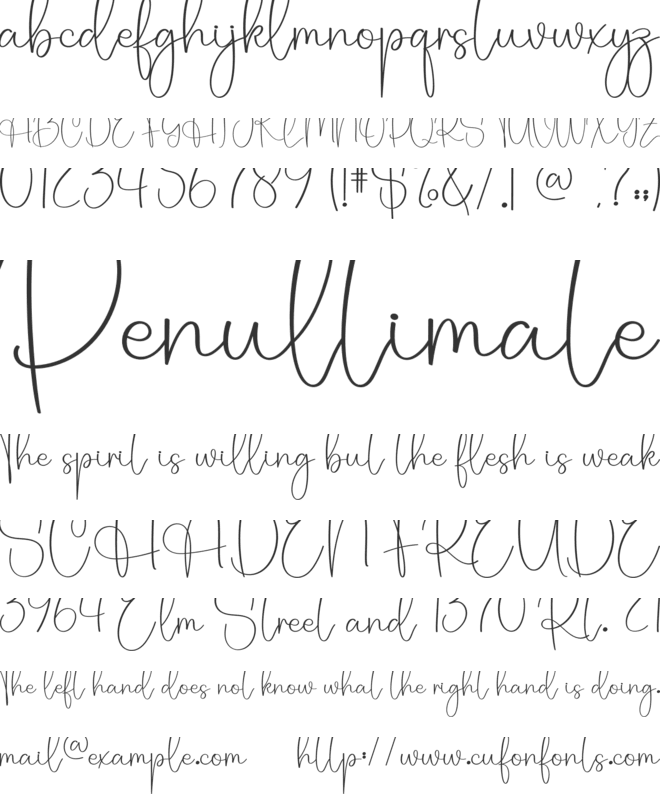 abcdefghijklmnopqrstuvwxyz
ABCDEFGHIJKLMNOPQRSTUVWXYZ
0123456789 (!#$%&/.| @ .?:;)
Penultimate
The spirit is willing but the flesh is weak
SCHADENFREUDE
3964 Elm Street and 1370 Rt. 21
The left hand does not know what the right hand is doing.
mail@example.com http://www.cufonfonts.com